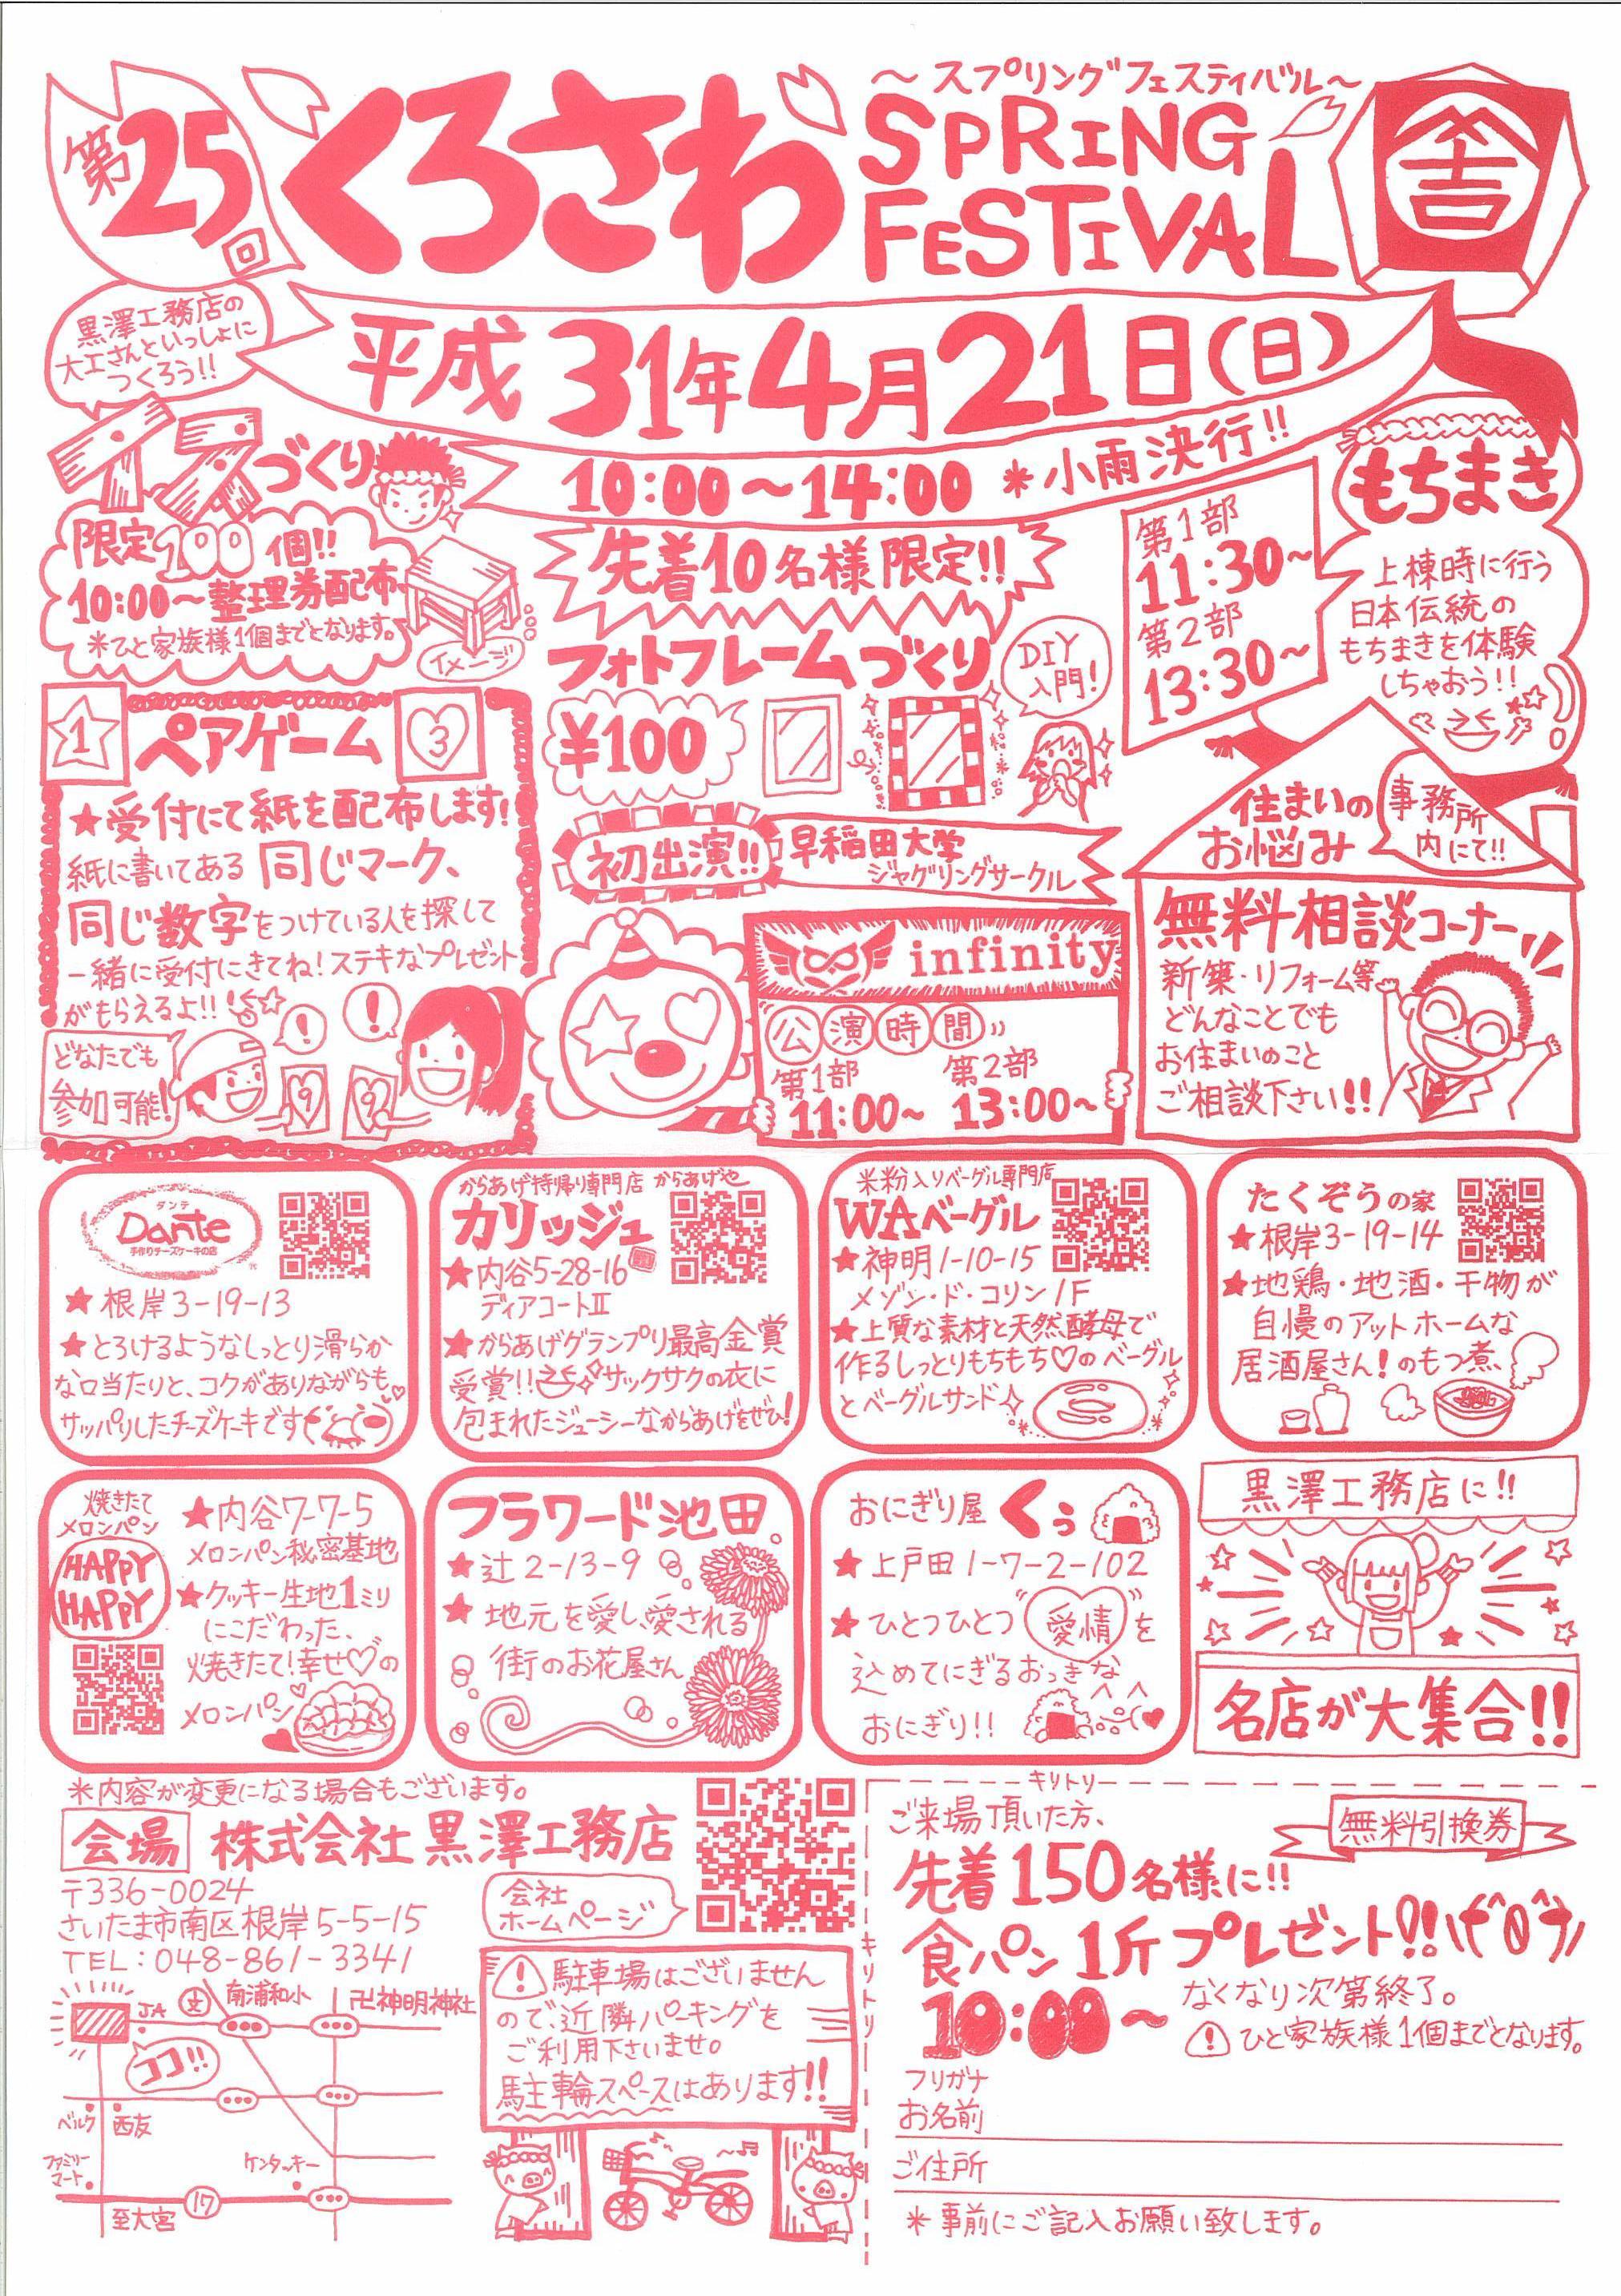 第25回
くろさわ
～スプリングフェスティバル～
SPRING
FESTIVAL
吉
黒澤工務店の
大工さんといっしょに
つくろう!!
平成31年4月21日(日)
10:00～14:00 *小雨決行!!
イスづくり
限定100個!!
10:00～整理券配布
*ひと家族様1個までとなります。
イメージ
先着10名様限定!!
フォトフレームづくり
DIY
入門!
¥100
もちまき
第1部
11:30～
第2部
13:30～
上棟時に行う
日本伝統の
もちまきを体験
しちゃおう!!
1
ペアゲーム
3
★受付にて紙を配布します!
紙に書いてある同じマーク、
同じ数字をつけている人を探して
一緒に受付にきてね!ステキなプレゼント
がもらえるよ!!
どなたでも
参加可能!
!
!
9
9
初出演!!
早稲田大学
ジャグリングサークル
infinity
公演時間
第1部
11:00～
第2部
13:00～
住まいの
お悩み
事務所
内にて!!
無料相談コーナー
新築・リフォーム等
どんなことでも
お住まいのこと
ご相談下さい!!
ダンテ
Dante
手作りチーズケーキの店
★根岸3-19-13
★とろけるようなしっとり滑らか
な口当たりと、コクがありながらも、
サッパリしたチーズケーキです
からあげ持帰り専門店 からあげや
カリッジュ
★内谷5-28-16
ディアコートⅡ
★からあげグランプリ最高金賞
受賞!!サックサクの衣に
包まれたジューシーなからあげをぜひ!
米粉入りベーグル専門店
WAベーグル
★神明1-10-15
メゾン・ド・コリン1F
★上質な素材と天然酵母で
作るしっとりもちもち♡のベーグル
とベーグルサンド
たくぞうの家
★根岸3-19-14
★地鶏・地酒・干物が
自慢のアットホームな
居酒屋さん!のもつ煮、
焼きたて
メロンパン
HAPPY
HAPPY
★内谷7-7-5
メロンパン秘密基地
★クッキー生地1ミリ
にこだわった、
焼きたて!幸せ♡の
メロンパン
フラワード池田
★辻2-13-9
★地元を愛し、愛される
街のお花屋さん
おにぎり屋 くぅ
★上戸田1-7-2-102
★ひとつひとつ愛情を
込めてにぎるおっきな
おにぎり!!
黒澤工務店に!!
名店が大集合!!
*内容が変更になる場合もございます。
会場 株式会社黒澤工務店
〒336-0024
さいたま市南区根岸5-5-15
TEL:048-861-3341
会社
ホームページ
JA
文
南浦和小
卍神明神社
ココ!!
ベルク
西友
ファミリー
マート
ケンタッキー
至大宮
17
駐車場はございません
ので、近隣パーキングを
ご利用下さいませ。
駐輪スペースはあります!!
キリトリ
キリトリ
ご来場頂いた方、
無料引換券
先着150名様に!!
食パン1斤プレゼント!!\(^0^)/
10:00～
なくなり次第終了。
ひと家族様1個までとなります。
フリガナ
お名前
ご住所
*事前にご記入お願い致します。